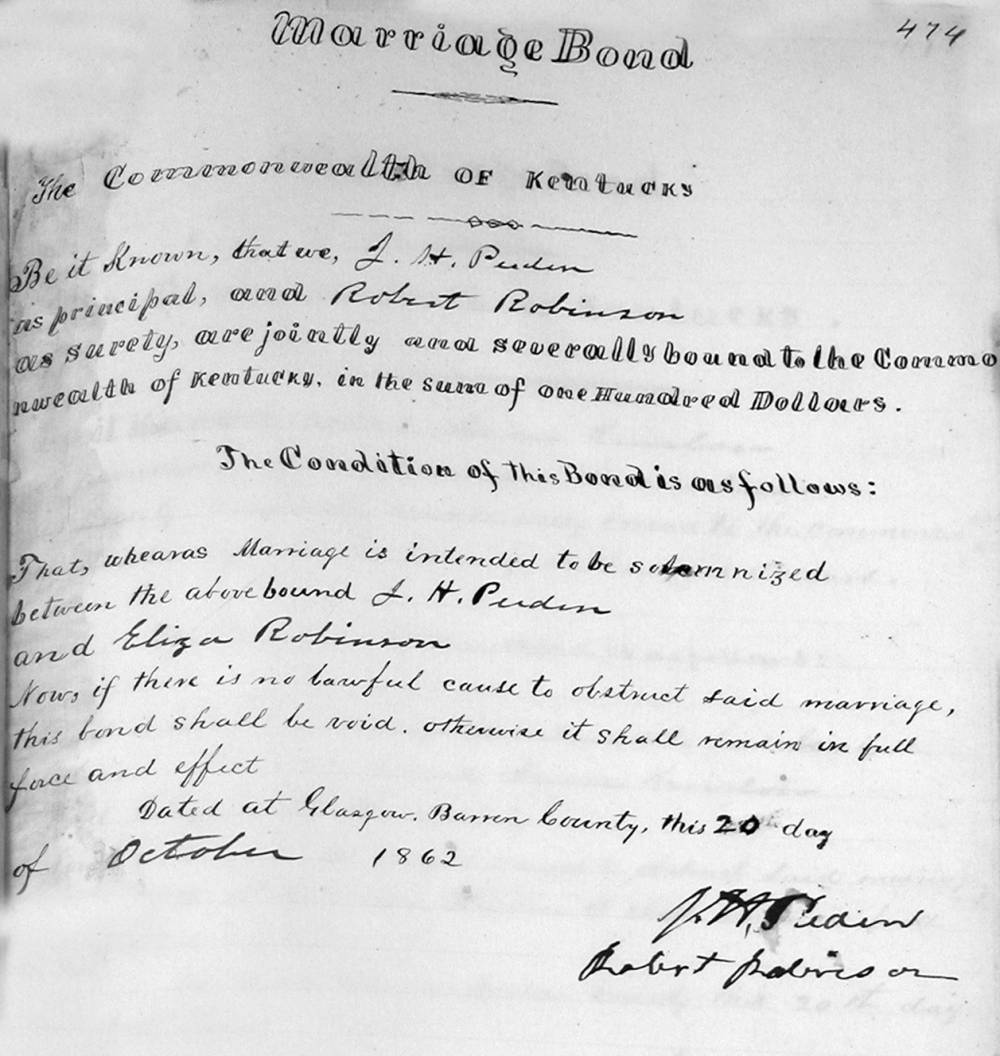 474
Marriage Bond
The Commonwealth OF Kentucky
Be it Known, that we, J. H. Peden
as principal, and Robert Robinson
as surety, are jointly and severally bound to the Commo
nwealth of Kentucky, in the sum of one Hundred Dollars.
The Condition of this Bond is as follows:
That, whearas Marriage is intended to be solemnized
between the above bound J. H. Peden
and Eliza Robinson
Now, if there is no lawful cause to obstruct said marriage,
this bond shall be void. otherwise it shall remain in full
force and effect
Dated at Glasgow. Barren County, this 20th day
of October 1862
J. H. Peden
Robert Robinson